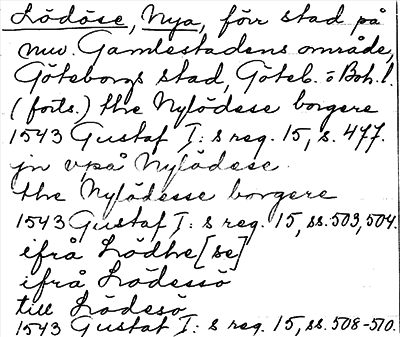 Lödöse, Nya, förr stad på
nuv. Gamlestadens område,
Göteborgs stad, Göteb. o Boh. l.
(forts.) the Nylödese borgere
1543 Gustaf I:s reg. 15, s. 477.
jn vpå Nylödese
the Nylödesse borgere
1543 Gustaf I:s reg. 15, ss. 503, 504.
ifrå Lödhe[se]
ifrå Lödessö
till Lödesö
1543 Gustaf I:s reg. 15, ss. 508-510.